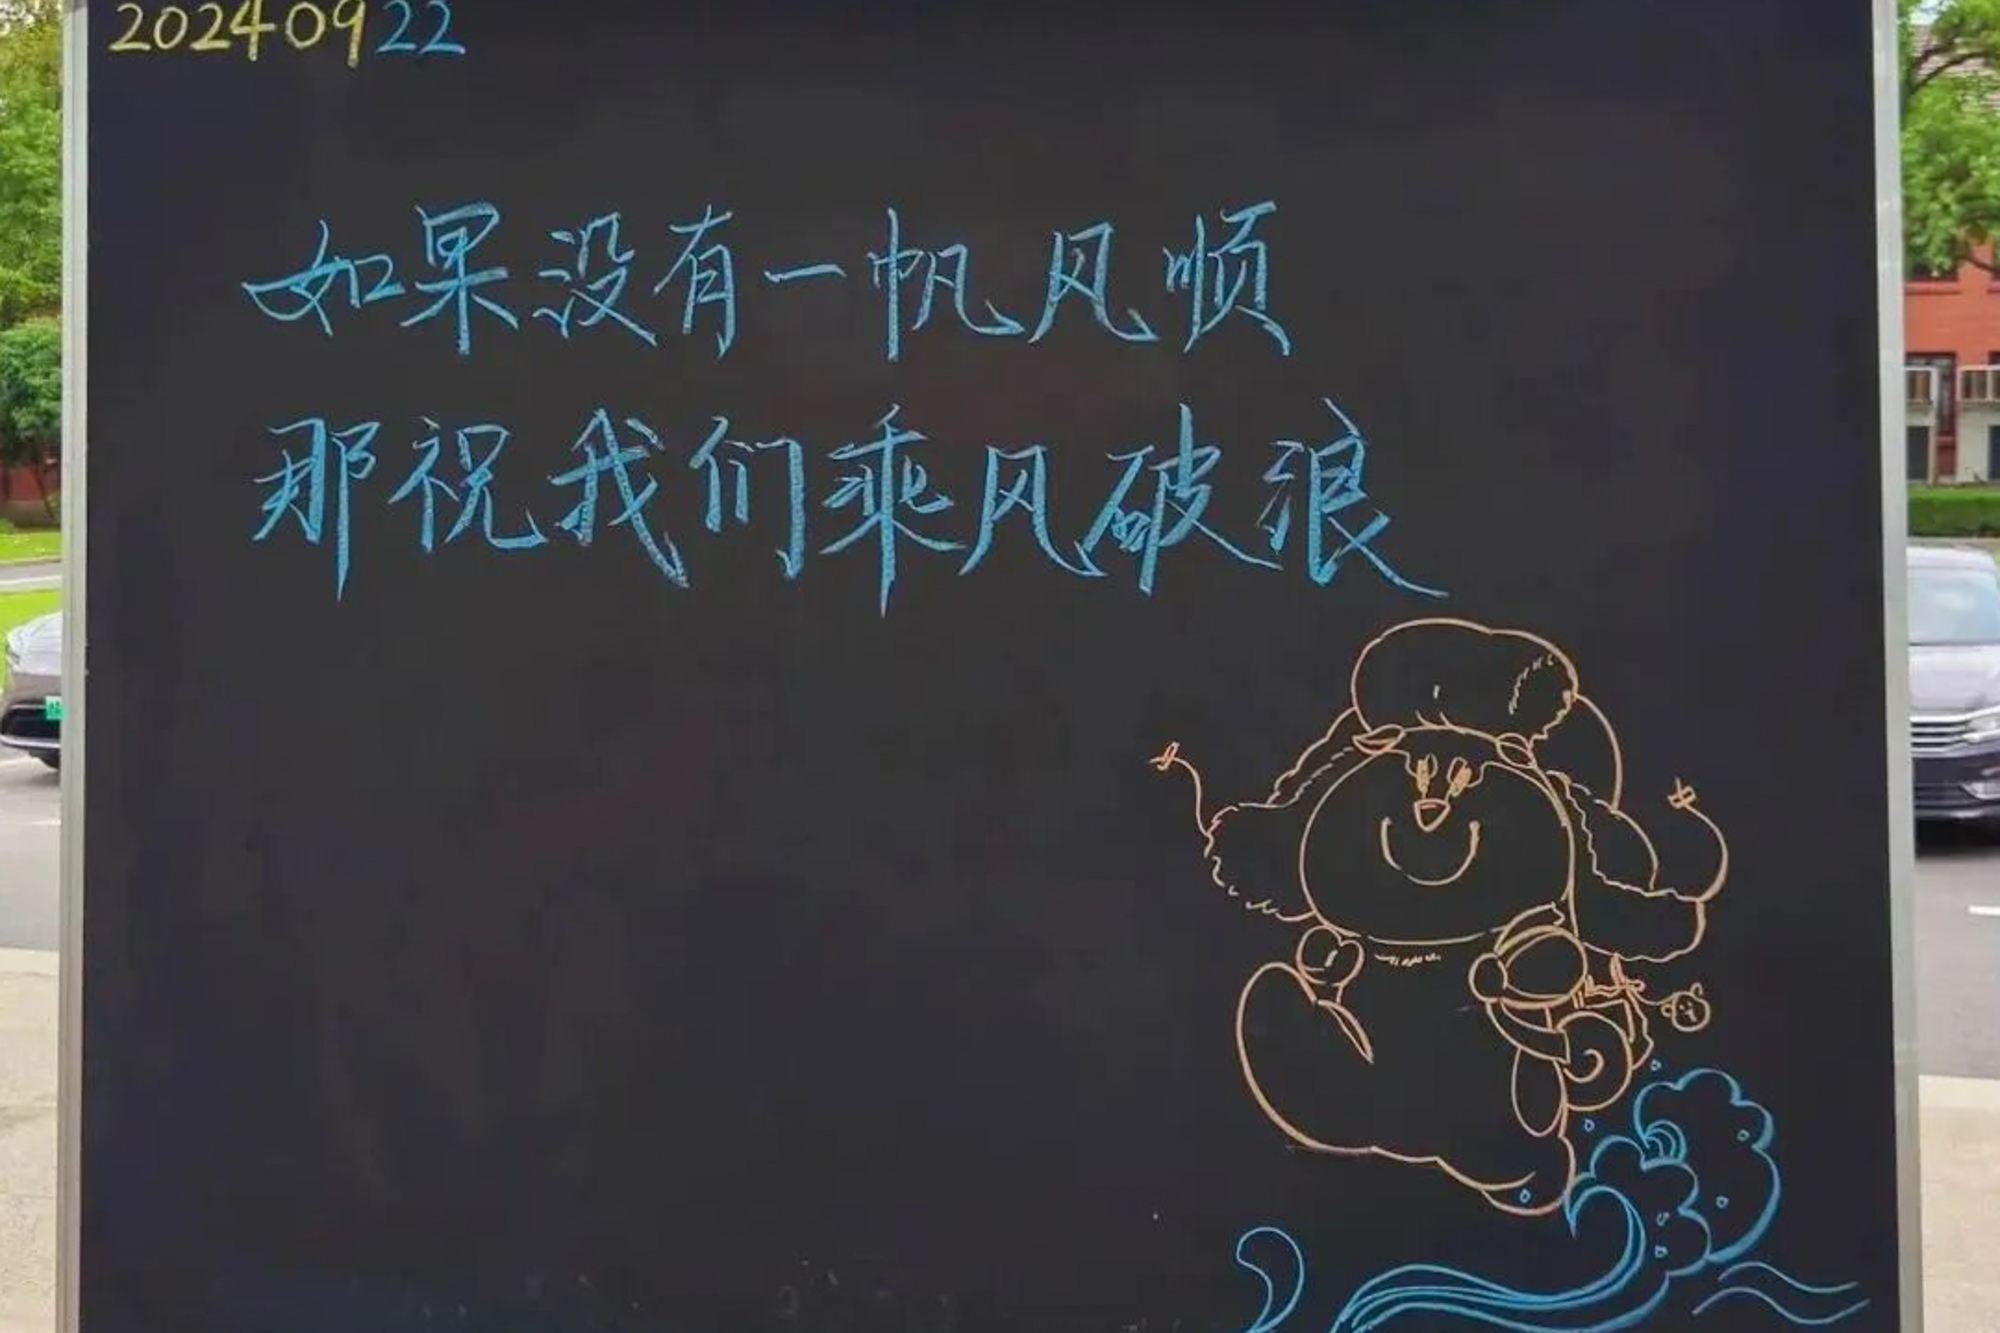 20240922
如果没有一帆风顺
那祝我们乘风破浪